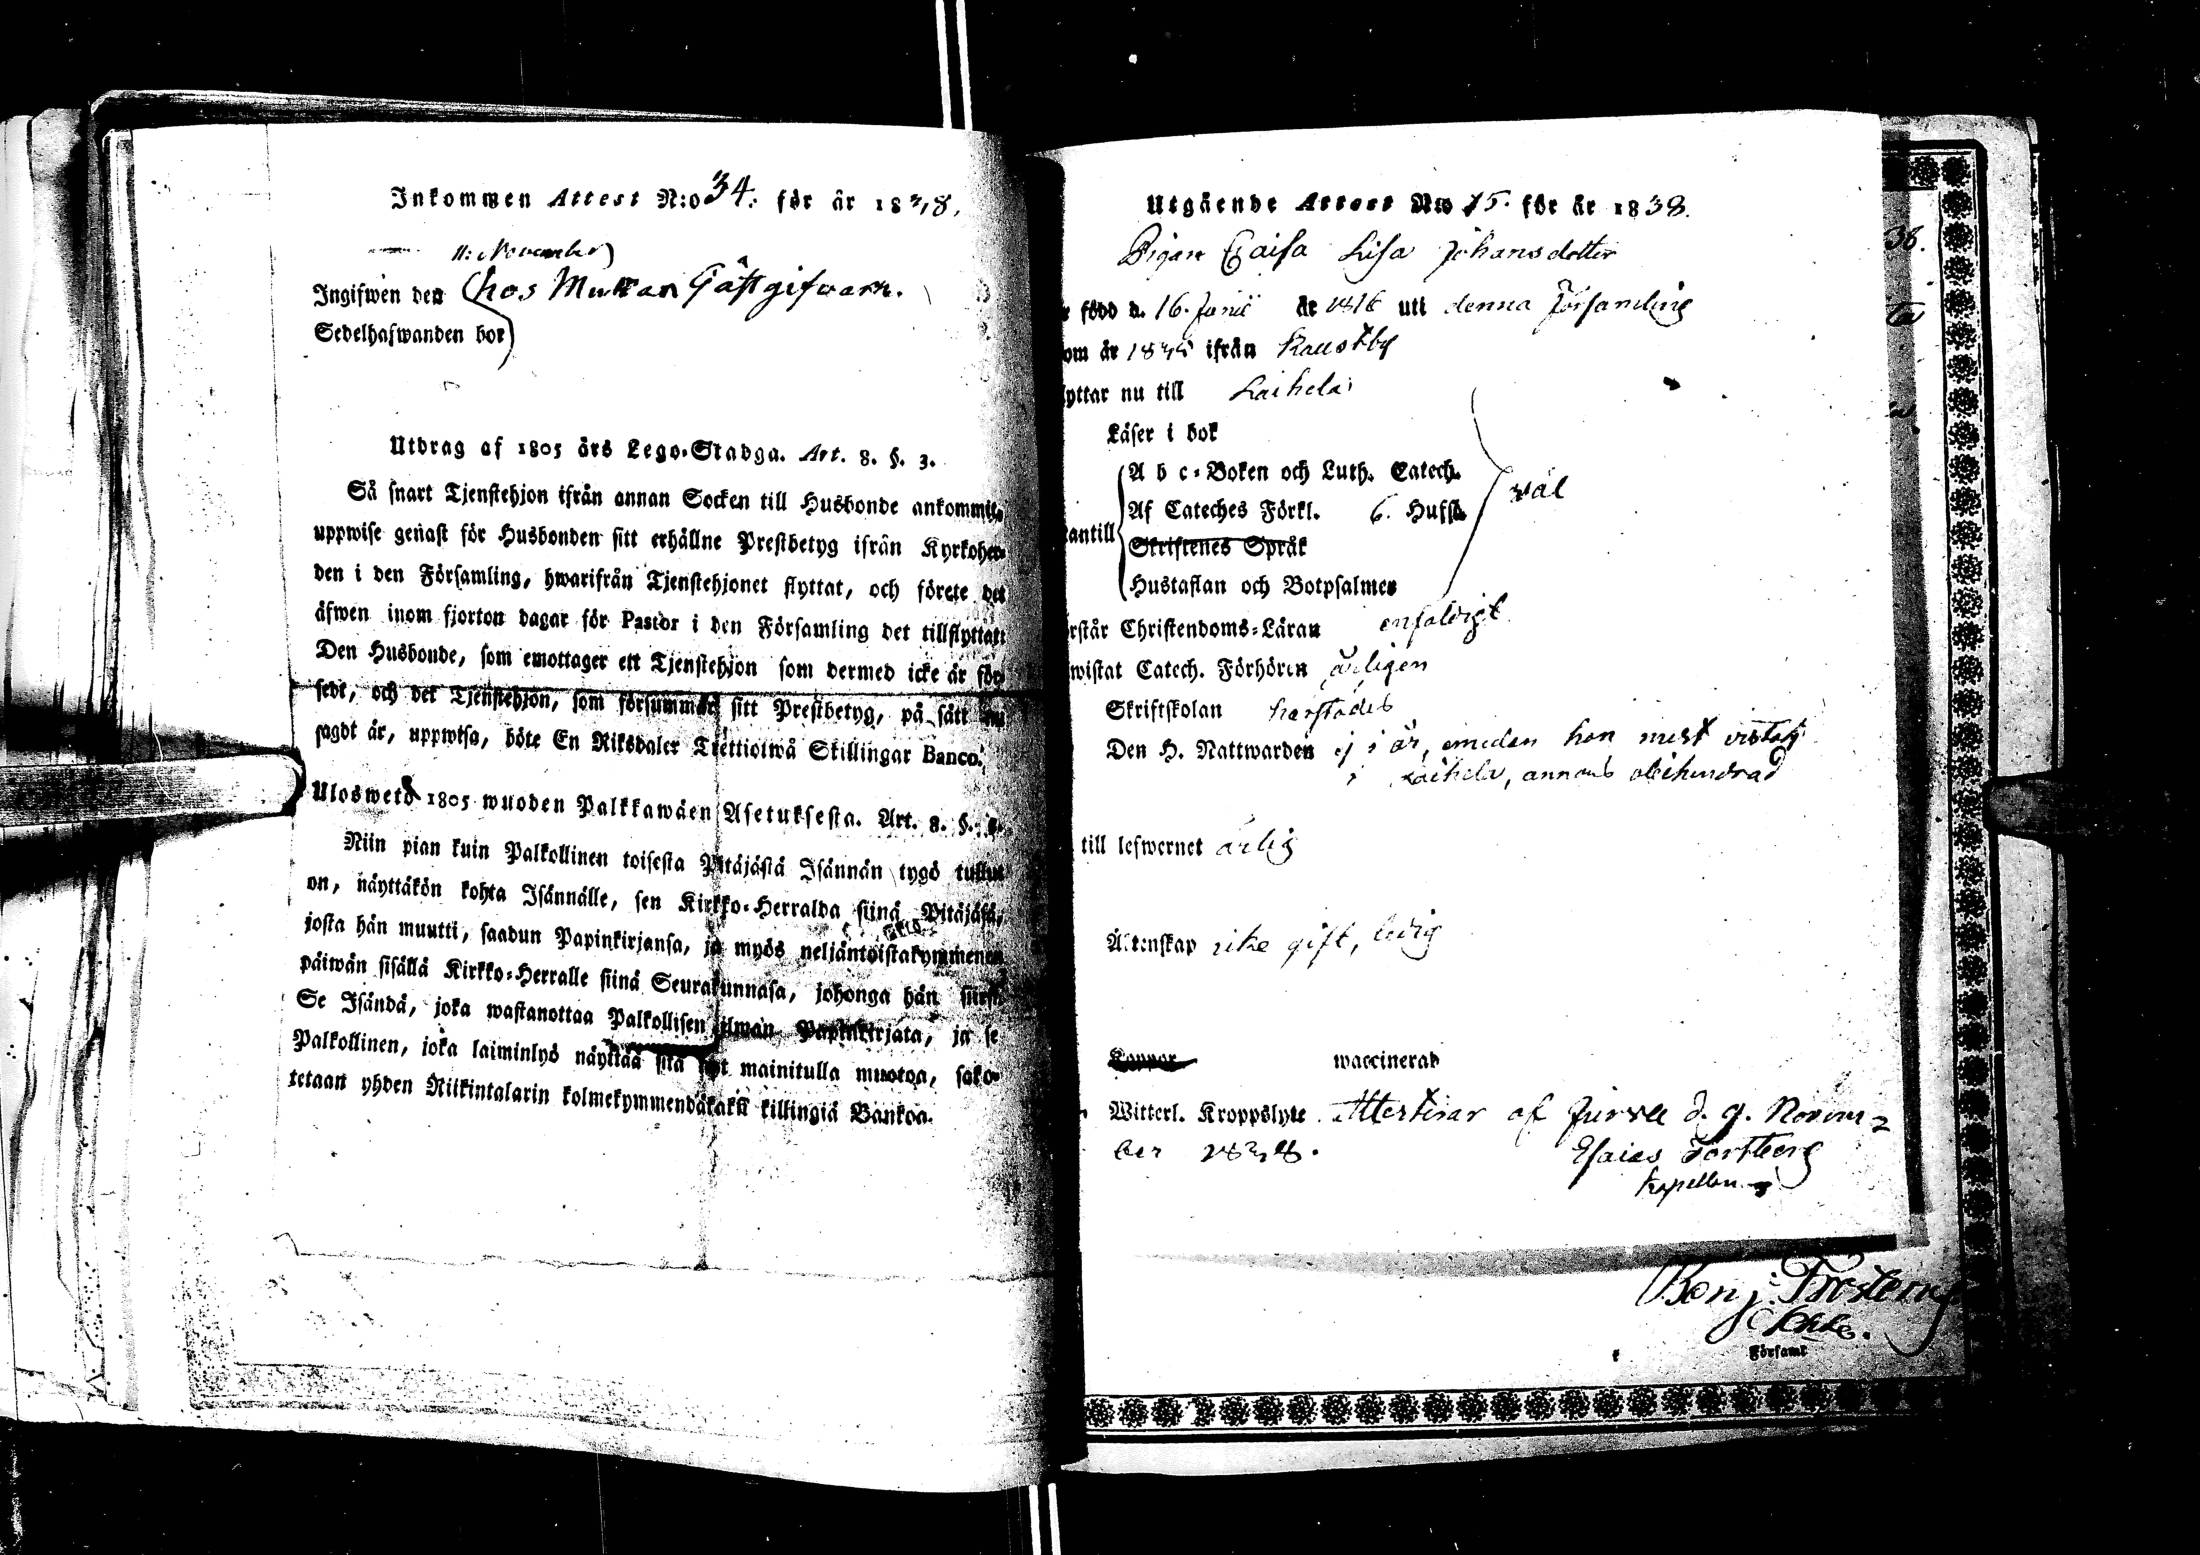 Inkommen Attest N:o 34. för år 1838.
11: November
Ingifwen den
hos Muttan Gästgifvarn.
Sedelhafwanden bor
Utdrag af 1805 års Lego-Stadga. Art. 8. §. 3.
Så snart Tjenstehjon ifrån annan Socken till Husbonde ankommit,
uppwise genast för Husbonden sitt erhållne Prestbetyg ifrån Kyrkoher-
den i den Församling, hwarifrån Tjenstehjonet flyttat, och förete det
äfwen inom fjorton dagar för Pastor i den Församling det tillflyttatt
Den Husbonde, som emottager ett Tjenstehjon som dermed icke är för-
sedt, och det Tjenstehjon, som försummar sitt Prestbetyg, på sätt nu
sagdt är, uppwisa, böte En Riksdaler Trettiotwå Skillingar Banco.
Uloswetö 1805 wuoden Palkkawäen Asetuksesta. Art. 8. §. 3.
Niin pian kuin Palkollinen toisesta Pitäjästä Isännän tygö tullut
on, näyttäkön kohta Isännälle, sen Kirkko-Herralda siinä Pitäjäsä,
josta hän muutti, saadun Papinkirjansa, ja myös neljäntoistakymmenen
päiwän sisällä Kirkko-Herralle siinä Seurakunnasa, johonga hän siirsi.
Se Isändä, joka wastanottaa Palkollisen ilman Papinkirjata, ja se
Palkollinen, joka laiminlyö näyttää sitä nyt mainitulla muotoa, sako-
tetaan yhden Riikintalarin kolmekymmendäkaksi killingiä Bankoa.
Utgående Attest N:o 15. för år 1838.
Pigan Caisa Lisa Johansdotter
född d. 16. Junii år 1816 uti denna Församling
om år 18 ifrån Kaustby
yttar nu till Laihela
Läser i bok
A b c-Boken och Luth. Catech.
Af Cateches Förkl. 6. Hufst.
väl
antill
Skriftenes Språk
Hustaflan och Botpsalmer
rstår Christendoms-Läran enfaldigt
wistat Catech. Förhören årligen
Skriftskolan härstädes
Den H. Nattwarden ej i år, emedan hon mest vistats
i Laihela, annars obehindrad
till lefwernet ärlig
Äktenskap icke gift, ledig
Koppor waccinerad
Witterl. Kroppslyte Attesterar af Jurva d. 9. Novem-
ber 1838.
Esaias Forsberg
Kapellan
38.
Benj.
Församl